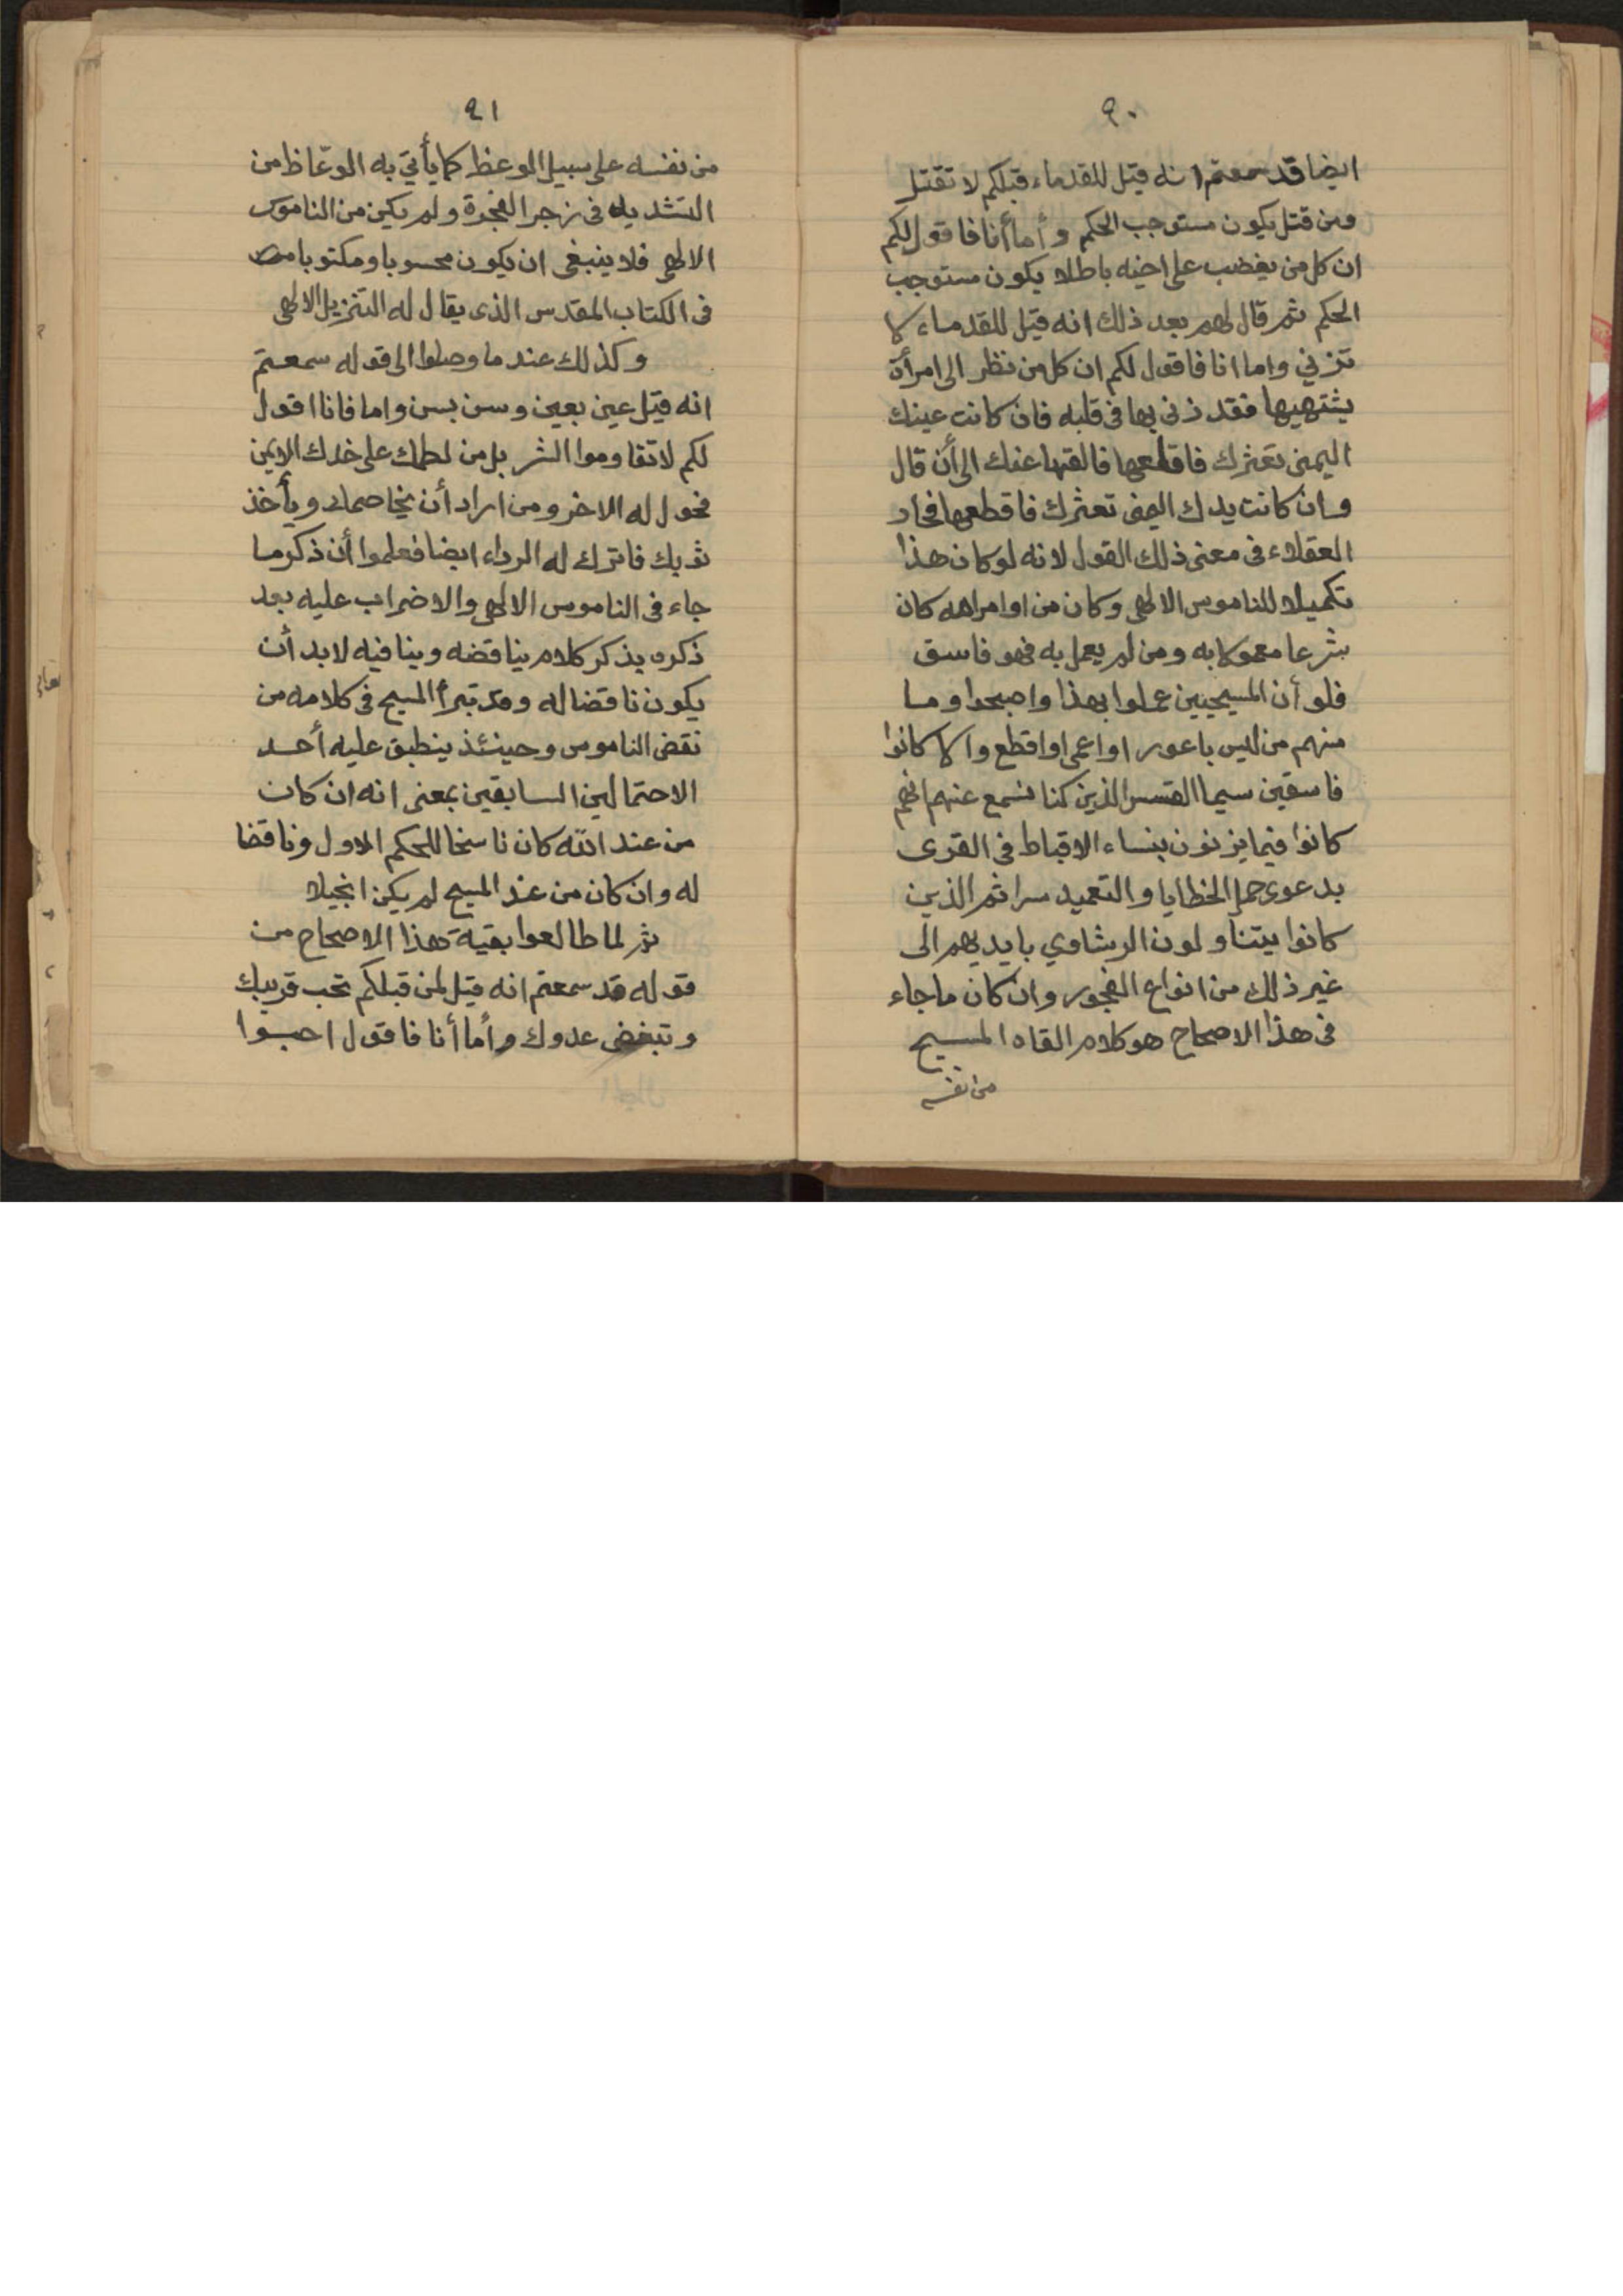 ٩٠
ايضا قد سمعتم انه قيل للقدماء قبلكم لا تقتل
ومن قتل يكون مستوجب الحكم وأما أنا فاقول لكم
ان كل من يغضب على اخيه باطلا يكون مستوجب
الحكم ثم قال لهم بعد ذلك انه قيل للقدماء لا
تزني واما انا فاقول لكم ان كل من نظر الى امرأة
يشتهيها فقد زنى بها فى قلبه فان كانت عينك
اليمنى تعثرك فاقلعها فالقها عنك الى أن قال
وان كانت يدك اليمنى تعثرك فاقطعها فحار
العقلاء فى معنى ذلك القول لانه لو كان هذا
تكميلا للناموس الالهى وكان من اوامر الله كان
شرعا معمولا به ومن لم يعمل به فهو فاسق
فلو أن المسيحيين عملوا بهذا واصبحوا وما
منهم من ليس باعور او اعمى او اقطع والا كانوا
فاسقين سيما القسس الذين كنا نسمع عنهم انهم
كانوا فيما يزنون بنساء الاقباط فى القرى
بدعوى حمل الخطايا والتعميد سرا ثم الذين
كانوا يتناولون الرشاوي بايديهم الى
غير ذلك من انواع الفجور وان كان ما جاء
فى هذا الاصحاح هو كلام القاه المسيح
من نفسه
٩١
من نفسه على سبيل الوعظ كما يأتي به الوعّاظ من
التشديد فى زجر الفجرة ولم يكن من الناموس
الالهى فلا ينبغى ان يكون محسوبا ومكتوبا
فى الكتاب المقدس الذى يقال له التنزيل الالهى
وكذلك عندما وصلوا الى قوله سمعتم
انه قيل عين بعين وسن بسن واما فانا اقول
لكم لا تقاوموا الشر بل من لطمك على خدك الايمن
فحول له الاخر ومن اراد أن يخاصمك ويأخذ
ثوبك فاترك له الرداء ايضا فعلموا أن ذكر ما
جاء فى الناموس الالهى والاضراب عليه بعد
ذكره بذكر كلام يناقضه وينافيه لابد أن
يكون ناقضا له وقد تبرأ المسيح فى كلامه من
نقض الناموس وحينئذ ينطبق عليه أحد
الاحتمالين السابقين بمعنى انه ان كان
من عند الله كان ناسخا للحكم الاول وناقضا
له وان كان من عند المسيح لم يكن انجيلا
ثم لما طالعوا بقية هذا الاصحاح من
قوله قد سمعتم انه قيل لمن قبلكم تحب قريبك
وتبغض عدوك وأما أنا فاقول احبوا